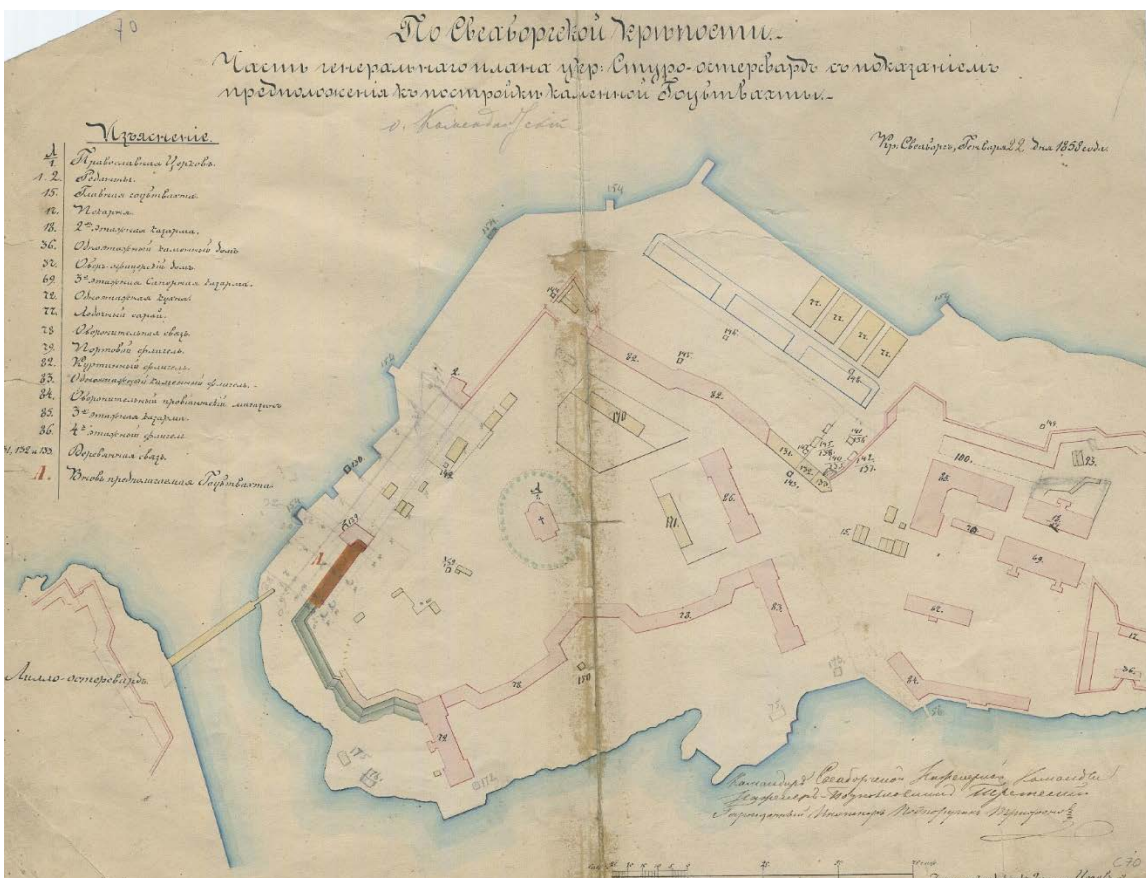 70
По Свеаборгской крѣпости.
Часть генеральнаго плана укр: Стуро-остерсвардъ съ показаніемъ
предположенія къ постройкѣ каменной Гоубтвахты.
о. Комендантскій
Кр. Свеаборгъ, Генваря 22 дня 1858 года.
Изъясненіе.
А/1 Православная Церковь.
1. 2. Реданты.
15. Главная гоубтвахта.
12. Пекарня.
18. 2хъ этажная казарма.
36. Одноэтажной каменный домъ
32. Оберъ-офицерскій домъ.
69. 3хъ этажная Саперная казарма.
72. Одноэтажная кухня.
77. Лодочный сарай.
78. Оборонительная связь.
79. Портовой флигель.
82. Куртинный флигель.
83. Одноэтажной каменный флигель.
84. Оборонительный провіантскій магазинъ
85. 3хъ этажная казарма.
86. 4хъ этажной флигель
131, 132 и 133. Деревянная связь.
А. Вновь предполагаемая Гоубтвахта.
154
154
154
154
2.
82.
82.
145.
146.
77.
77.
77.
77.
148.
170
171.
86.
131.
132.
143.
141.
100.
23.
85.
15.
69.
62.
12.
36.
84.
83.
78.
78.
150
79.
172
175
176.
138.
139
А.
149.
Лилло-остерсвардъ
Командиръ Свеаборгской Инженерной Команды
Инженеръ-Подполковникъ
С70